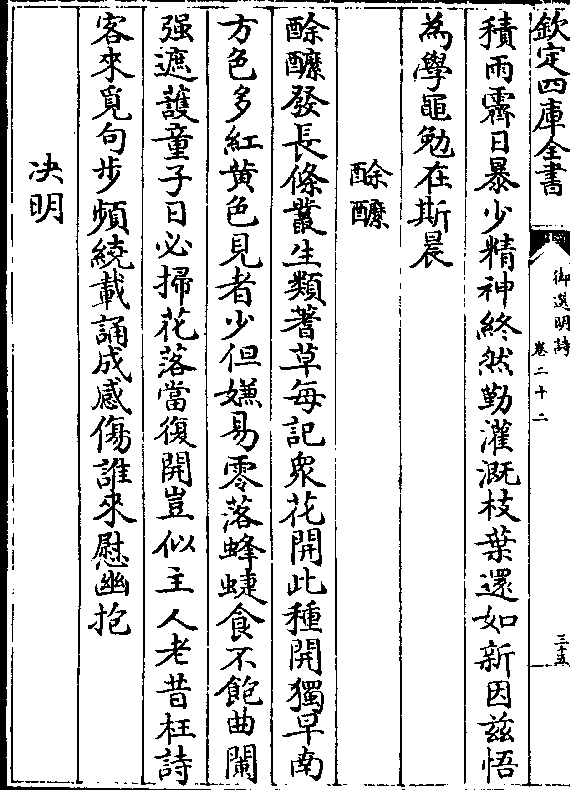 欽定四庫全書
御選明詩
卷二十二
三十五
積雨霽日暴少精神終然勤灌溉枝葉還如新因兹悟
為學黽勉在斯晨
酴醿
酴醿發長條叢生類蓍草每記衆花開此種開獨早南
方色多紅黄色見者少但嫌易零落蜂蜨食不飽曲闌
强遮護童子日必掃花落當復開豈似主人老昔枉詩
客來覓句步頻繞載誦成感傷誰來慰幽抱
决明